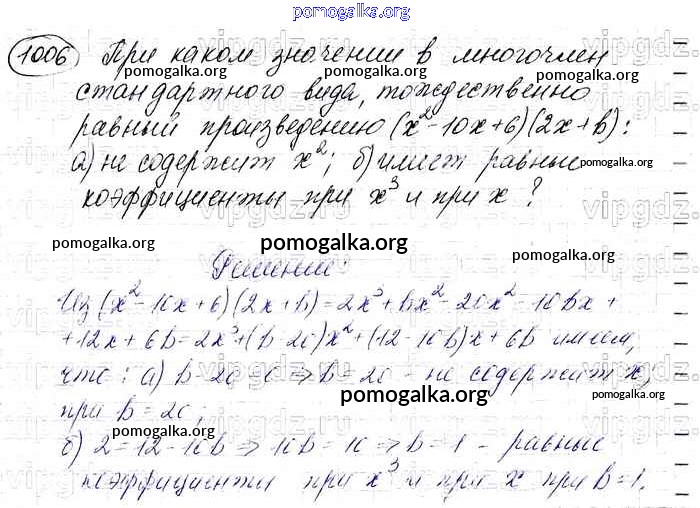 pomogalka.org
1006 При каком значении в многочлен
pomogalka.org pomogalka.org
стандартного вида, тождественно
равный произведению (x²-10x+6)(2x+b):
а) не содержит x²; б) имеет равные
pomogalka.org
коэффициенты при x³ и при x?
pomogalka.org pomogalka.org pomogalka.org
Решение:
Из (x²-10x+6)(2x+b)=2x³+bx²-20x²-10bx+
+12x+6b=2x³+(b-20)x²+(12-10b)x+6b имеем,
что: а) b-20=0⇒b=20 - не содержит x,
pomogalka.org
при b=20,
pomogalka.org pomogalka.org
б) 2=12-10b⇒10b=10⇒b=1 - равные
коэффициенты при x³ и при x при b=1.
pomogalka.org
vipgdz.ru